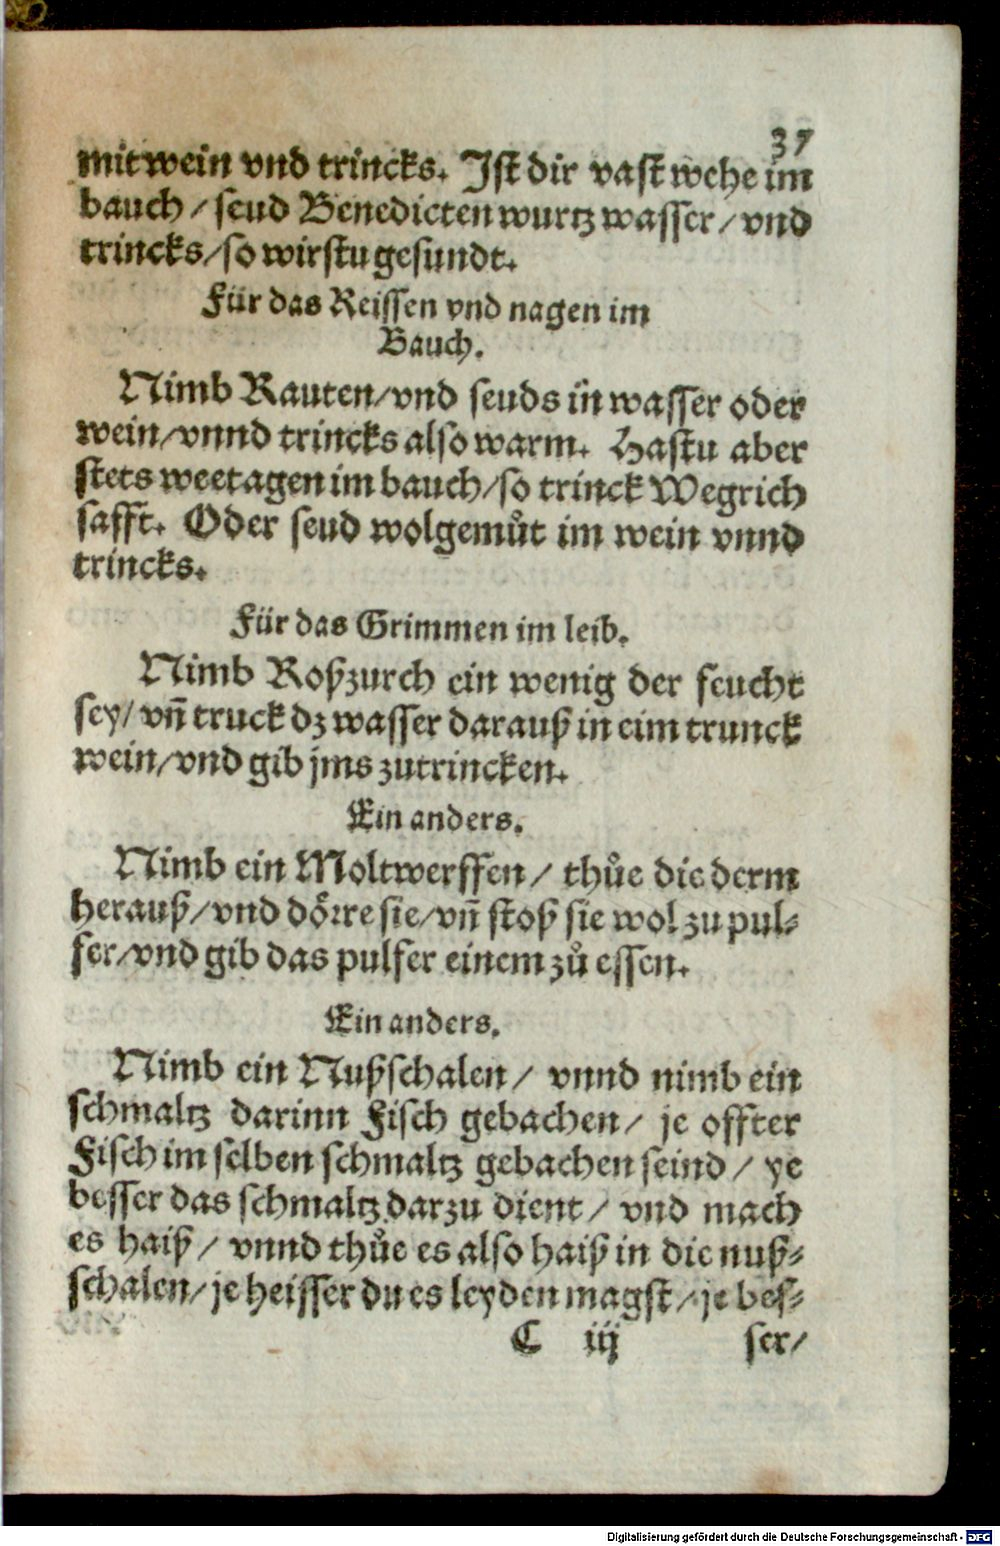 37
mit wein vnd trincks. Jst dir vast wehe im
bauch / seud Benedicten wurtz wasser / vnd
trincks / so wirstu gesundt.
Für das Reissen vnd nagen im
Bauch.
Nimb Rauten / vnd seuds in wasser oder
wein / vnnd trincks also warm. Hastu aber
stets weetagen im bauch / so trinck Wegrich
safft. Oder seud wolgemůt im wein vnnd
trincks.
Für das Grimmen im leib.
Nimb Roßzurch ein wenig der feucht
sey / vñ truck dz wasser darauß in eim trunck
wein / vnd gib jms zutrincken.
Ein anders.
Nimb ein Moltwerffen / thůe die derm
herauß / vnd dörre sie / vñ stoß sie wol zu pul-
fer / vnd gib das pulfer einem zů essen.
Ein anders.
Nimb ein Nußschalen / vnnd nimb ein
schmaltz darinn Fisch gebachen / je offter
Fisch im selben schmaltz gebachen seind / ye
besser das schmaltz darzu dient / vnd mach
es haiß / vnnd thůe es also haiß in die nuß-
schalen / je heisser du es leyden magst / je bes-
C iij ser /
Digitalisierung gefördert durch die Deutsche Forschungsgemeinschaft - DFG